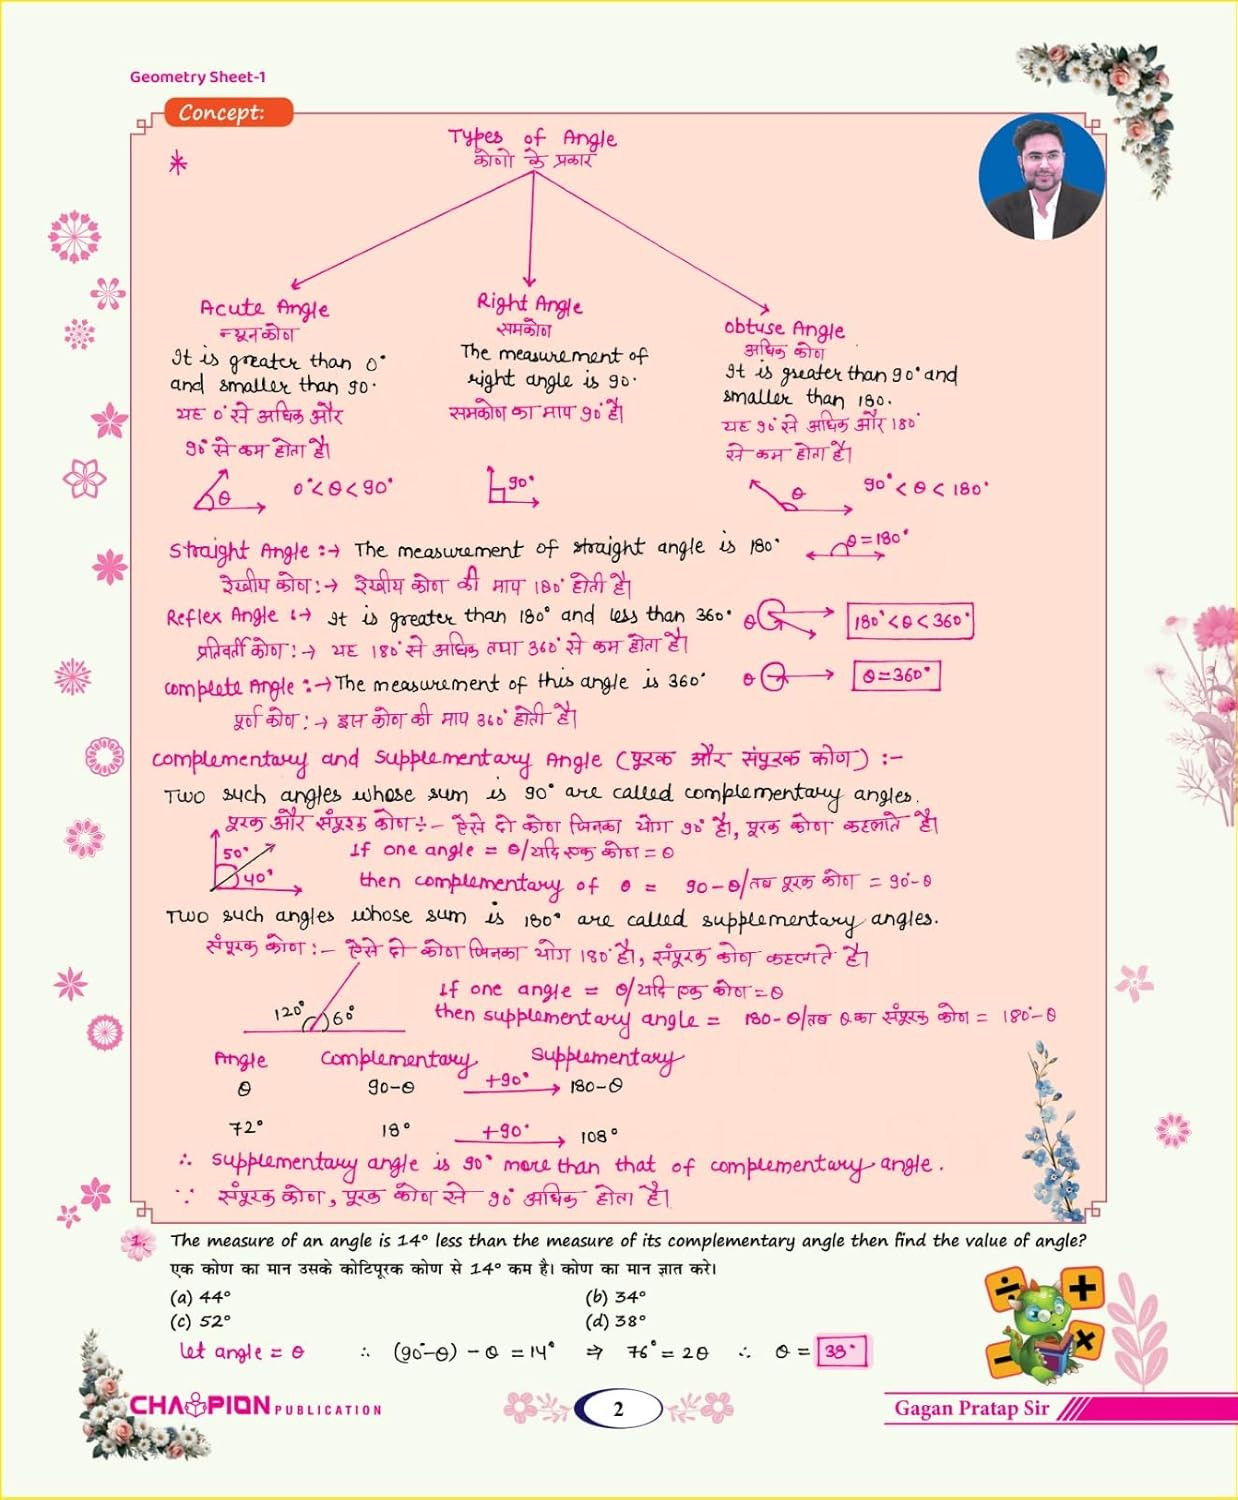 Geometry Sheet-1
Concept:
Types of Angle
कोणो के प्रकार
Acute Angle
न्यूनकोण
It is greater than 0°
and smaller than 90.
यह 0° से अधिक और
90° से कम होता है।
θ 0°<θ<90°
Right Angle
समकोण
The measurement of
right angle is 90.
समकोण का माप 90° है।
90°
Obtuse Angle
अधिक कोण
It is greater than 90° and
smaller than 180.
यह 90° से अधिक और 180°
से कम होता है।
θ 90° < θ < 180°
Straight Angle :→ The measurement of straight angle is 180° θ=180°
रेखीय कोण:→ रेखीय कोण की माप 180° होती है।
Reflex Angle :→ It is greater than 180° and less than 360° θ 180° < θ < 360°
प्रतिवर्ती कोण:→ यह 180° से अधिक तथा 360° से कम होता है।
Complete Angle :→ The measurement of this angle is 360° θ θ=360°
पूर्ण कोण:→ इस कोण की माप 360° होती है।
Complementary and Supplementary Angle (पूरक और संपूरक कोण) :-
Two such angles whose sum is 90° are called complementary angles.
पूरक और संपूरक कोण:- ऐसे दो कोण जिनका योग 90° है, पूरक कोण कहलाते है।
50° If one angle = θ/यदि एक कोण = θ
40° then complementary of θ = 90-θ/तब पूरक कोण = 90°-θ
Two such angles whose sum is 180° are called supplementary angles.
संपूरक कोण:- ऐसे दो कोण जिनका योग 180° है, संपूरक कोण कहलाते है।
If one angle = θ/यदि एक कोण = θ
120° 60° then supplementary angle = 180-θ/तब θ का संपूरक कोण = 180°-θ
Angle Complementary Supplementary
θ 90-θ +90° 180-θ
72° 18° +90° 108°
∴ Supplementary angle is 90° more than that of complementary angle.
∵ संपूरक कोण, पूरक कोण से 90° अधिक होता है।
1. The measure of an angle is 14° less than the measure of its complementary angle then find the value of angle?
एक कोण का मान उसके कोटिपूरक कोण से 14° कम है। कोण का मान ज्ञात करे।
(a) 44° (b) 34°
(c) 52° (d) 38°
Let angle = θ ∴ (90°-θ) - θ = 14° ⇒ 76° = 2θ ∴ θ = 38°
CHAMPION PUBLICATION
2
Gagan Pratap Sir